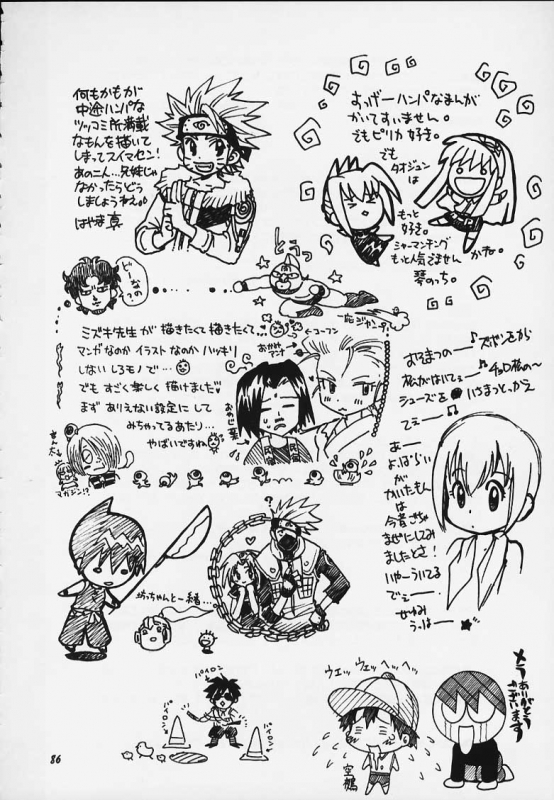 何もかもが
中途ハンパな
ツッコミ所満載
なもんを描いて
しまってスイマセン!
あの二人…兄妹じゃ
なかったらどう
しましょうねぇ。
はやま 真
おっげーハンパなまんが
かいてすいません。
でもピリカ好き。
でも
タオジュン
は
もっと
好き。
シャーマンキング
もっと人気でません
かね。
琴のっち。
とうっ
ミズキ先生が描きたくて描きたくて
マンガなのかイラストなのかハッキリ
しないしろモノで…
でもすごく楽しく描けました
まずありえない設定にして
みちゃってるあたり…
やばいですね
マガジン!?
坊っちゃんと一緒…
あー
よっぱらい
が
かいたもん
は
今音ごちゃ
まぜにしてみ
ましたとさ!
いやーういてる
でぇー
パイロン
パイロン
ウェッ ウェッ ヘッヘッ
空鵺
メラ
ありがとう
ございます
86